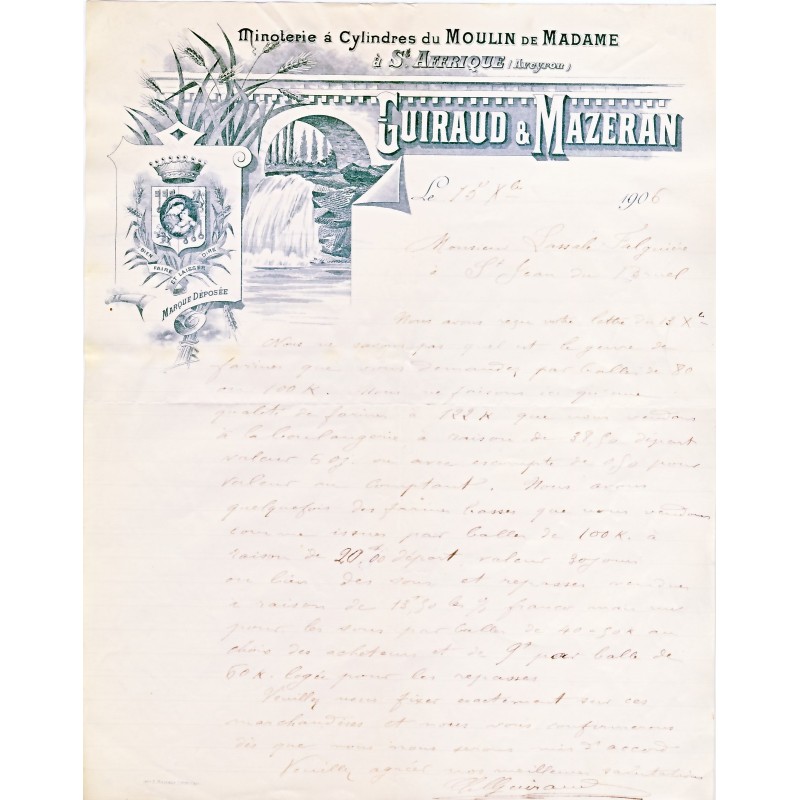 Minoterie à Cylindres du MOULIN DE MADAME
à St AFFRIQUE (Aveyron)
GUIRAUD & MAZERAN
BIEN FAIRE ET LAISSER DIRE
MARQUE DÉPOSÉE
Le 15 Xbre 1906
Monsieur
à St Jean du Bruel
Nous avons reçu votre lettre du 13 Xbre
Nous ne savons pas quel est le genre de
farines que vous demandez par balles de 80
ou 100 K. Nous ne faisons qu'une
qualité de farines à 122 K que nous vendons
à la boulangerie à raison de départ
valeur ou avec escompte de pour
valeur au comptant. Nous avons
quelquefois des farines basses que nous vendons
comme issues par balles de 100 K. à
raison de 20.00 départ valeur 30 jours
ou bien des sons et repasses vendues
à raison de 13.50 les franco
pour les sons par balles de 40 à 50 K au
choix des acheteurs et de par balle de
60 K. logée pour les repasses
Veuillez nous fixer exactement sur ces
marchandises et nous vous confirmerons
dès que nous nous serons mis d'accord
Veuillez agréer nos meilleures salutations
Guiraud